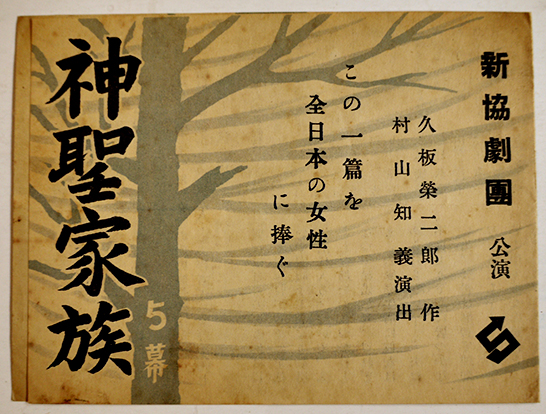 新協劇團 公演
久板榮二郎 作
村山知義 演出
この一篇を
全日本の女性
に捧ぐ
5幕
神聖家族